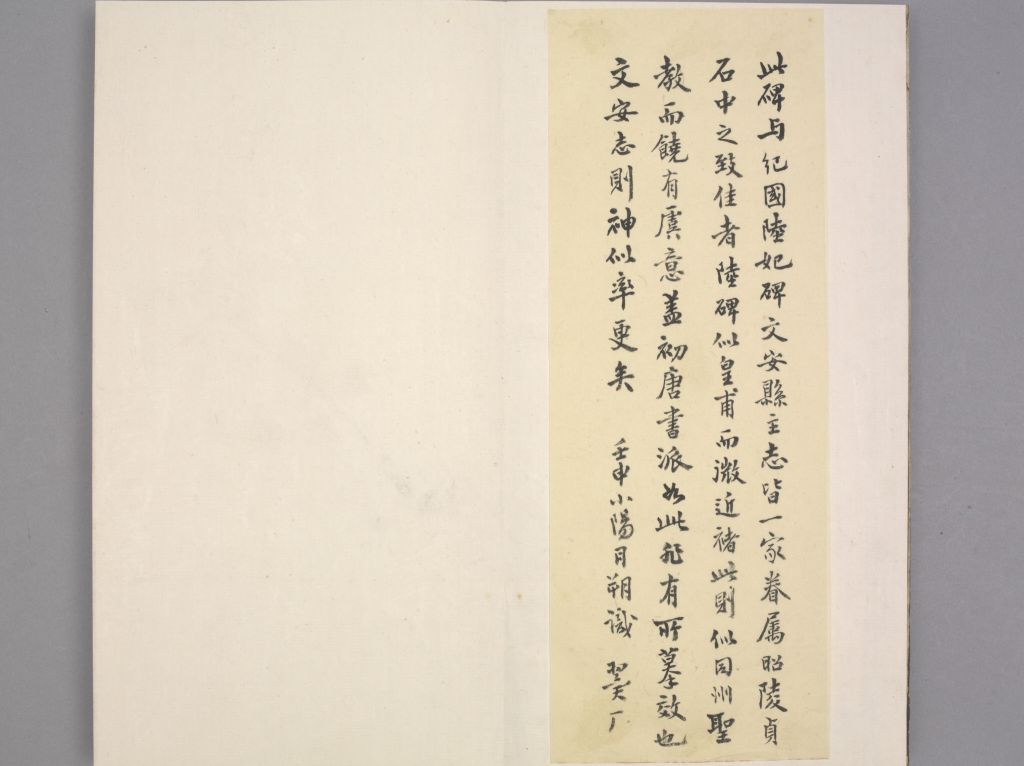 此碑与纪國陸妃碑文安縣主志皆一家眷属昭陵貞
石中之致佳者陸碑似皇甫而微近褚此則似同州聖
教而饒有虞意盖初唐書派如此非有所摹效也
文安志則神似率更矣 壬申小陽月朔識 翼厂